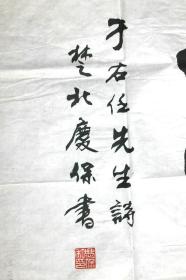 于右任先生詩
楚北慶保書